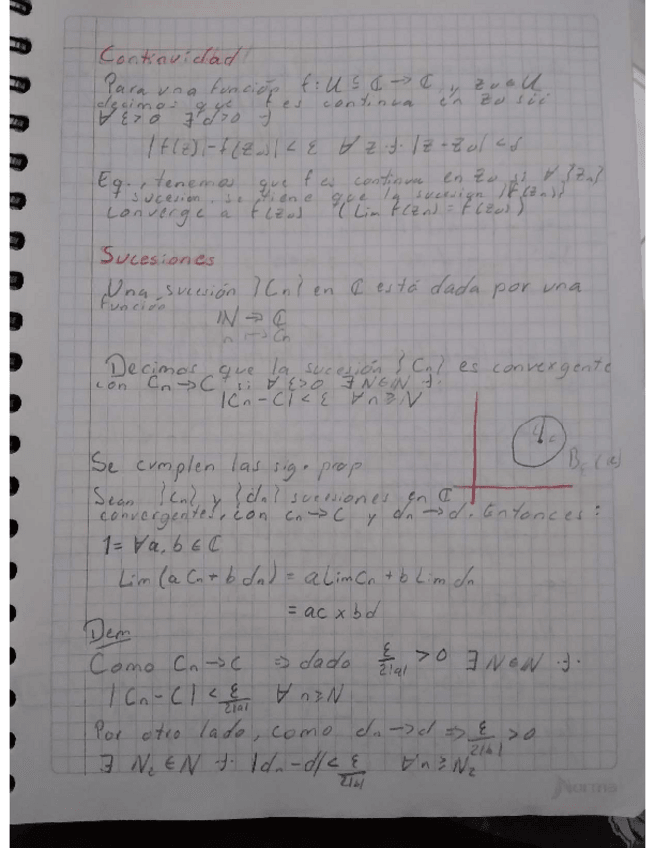 Continuidad
Para una función f: U ⊆ ℂ → ℂ y z₀ ∈ U
decimos que f es continua en z₀ sii
∀ ε > 0 ∃ δ > 0 ·t·
|f(z) - f(z₀)| < ε ∀ z ·t· |z - z₀| < δ
Eq., tenemos que f es continua en z₀ si ∀ {zₙ}
sucesión se tiene que la sucesión {f(zₙ)}
converge a f(z₀) (Lim f(zₙ) = f(z₀))
Sucesiones
Una sucesión {Cₙ} en ℂ está dada por una
función
ℕ → ℂ
n → Cₙ
Decimos que la sucesión {Cₙ} es convergente
con Cₙ → C si ∀ ε > 0 ∃ N ∈ ℕ ·t·
|Cₙ - C| < ε ∀ n ≥ N
Se cumplen las sig. prop
Sean {Cₙ} y {dₙ} sucesiones en ℂ
convergentes, con cₙ → C y dₙ → d. Entonces:
1= ∀ a, b ∈ ℂ
Lim (a Cₙ + b dₙ) = a Lim Cₙ + b Lim dₙ
= ac x bd
Dem
Como Cₙ → C ⇒ dado ε/(2|a|) > 0 ∃ N ∈ ℕ ·t·
|Cₙ - C| < ε/(2|a|) ∀ n ≥ N
Por otro lado, como dₙ → d ⇒ ε/(2|b|) > 0
∃ N₂ ∈ ℕ ·t· |dₙ - d| < ε/(2|b|) ∀ n ≥ N₂
Norma